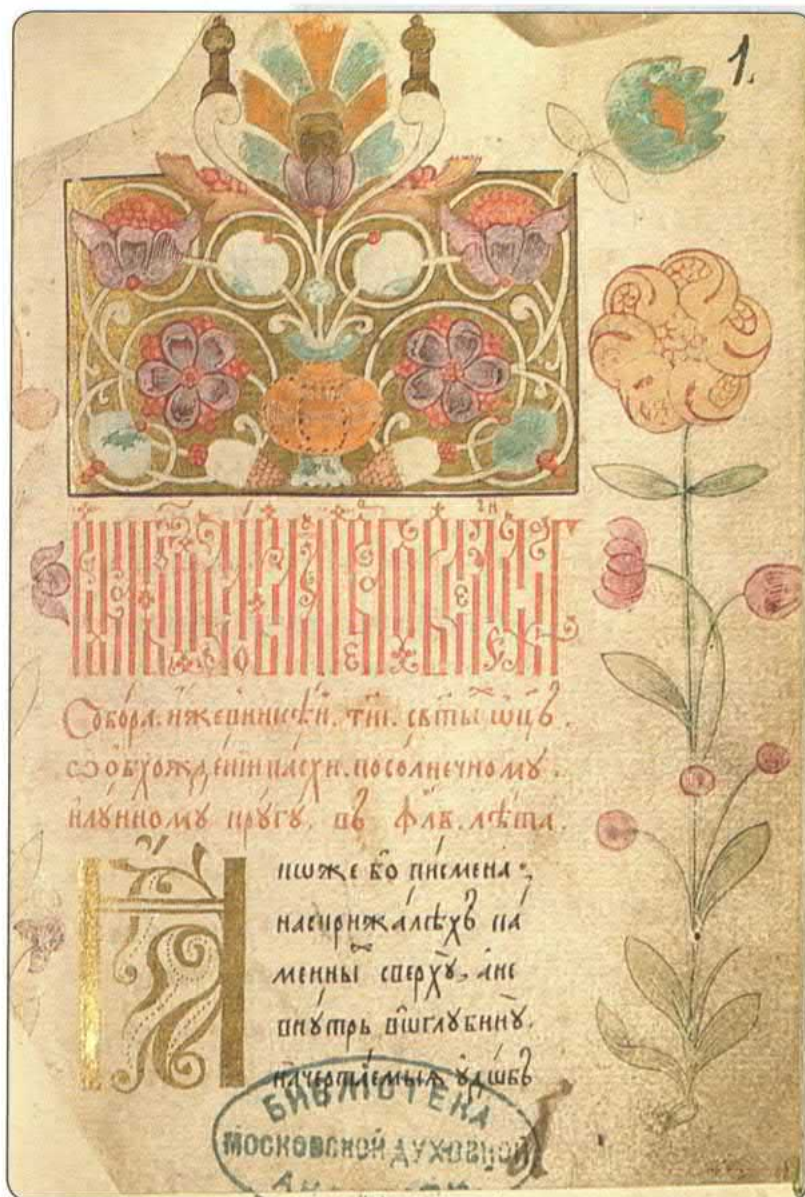 1.
Собора. иже в никеи. тиі. свѧты ѿцъ.
ѡ обхождении пасхи. по солнечному.
и лунному кругу. въ флв. лѣта.
Ꙗкѡже бо писмена,
на скрижалѣхъ ка
менны сверху, а не
внутрь въ глубину.
начертаемыѧ удѡбь
БИБЛІОТЕКА
МОСКОВСКОЙ ДУХОВНОЙ